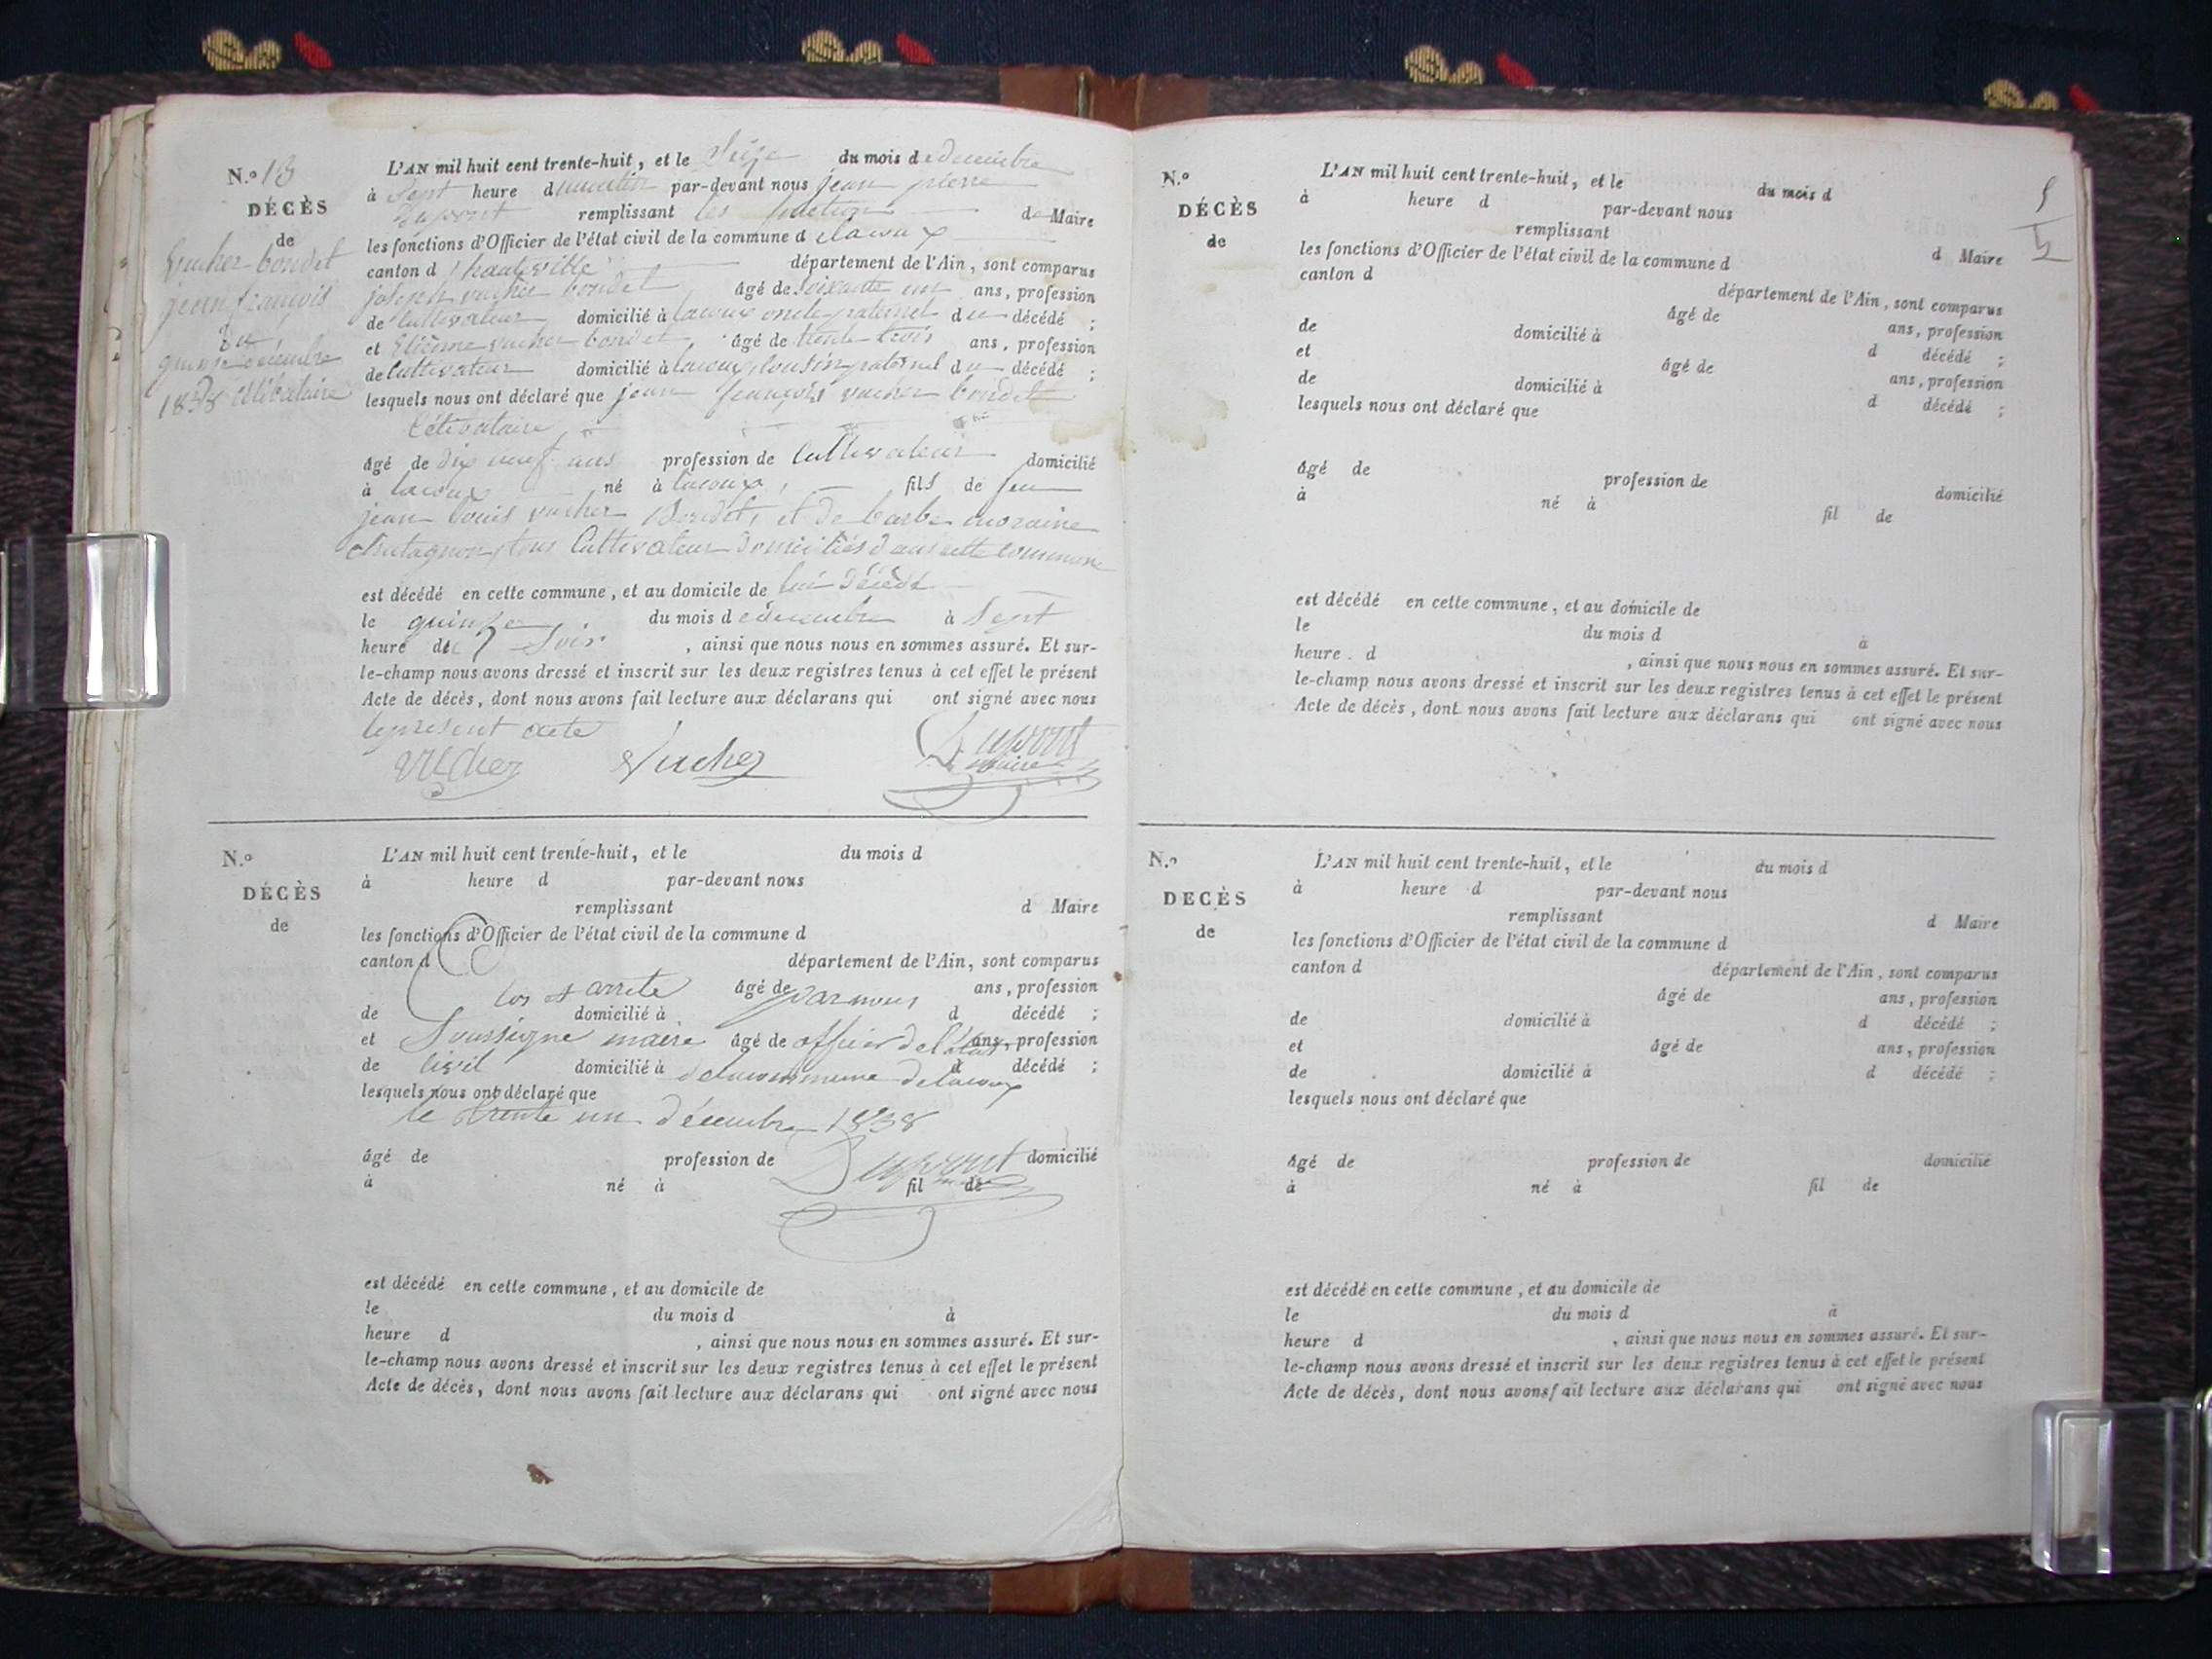 N.º 13
DÉCÈS
de
Vucher bondet
jean françois
du
quinze décembre
1838 célibataire
L'AN mil huit cent trente-huit, et le Seize du mois de decembre
à Sept heure du matin par-devant nous jean pierre
Dupont remplissant les fonction de Maire
les fonctions d'Officier de l'état civil de la commune de lacoux
canton d'hauteville département de l'Ain, sont comparus
joseph vucher bondet âgé de soixante un ans, profession
de Cultivateur domicilié à lacoux oncle paternel du décédé ;
et Etienne vucher bondet, âgé de trente trois ans, profession
de Cultivateur domicilié à lacoux, Cousin paternel du décédé ;
lesquels nous ont déclaré que jean françois vucher bondet
Célibataire,
âgé de dix neuf ans profession de Cultivateur domicilié
à lacoux né à lacoux, fils de feu
jean louis vucher Bondet, et de barbe moraine
Chatagnon, tous Cultivateur Domiciliés dans cette commune
est décédé en cette commune, et au domicile de lui décédé
le quinze du mois de decembre à Sept
heure du Soir, ainsi que nous nous en sommes assuré. Et sur-
le-champ nous avons dressé et inscrit sur les deux registres tenus à cet effet le présent
Acte de décès, dont nous avons fait lecture aux déclarans qui ont signé avec nous
le present acte
Vucher Vucher Dupont
maire
N.º
DÉCÈS
de
L'AN mil huit cent trente-huit, et le du mois d
à heure d par-devant nous
remplissant d Maire
les fonctions d'Officier de l'état civil de la commune d
canton d département de l'Ain, sont comparus
Clos et arrete âgé de par nous ans, profession
de domicilié à d décédé ;
et Soussigne maire âgé de officier de l'état ans, profession
de Civil domicilié à de la commune de lacoux d décédé ;
lesquels nous ont déclaré que
le trente un décembre 1838
âgé de profession de Dupont domicilié
à né à fil de
est décédé en cette commune, et au domicile de
le du mois d à
heure d , ainsi que nous nous en sommes assuré. Et sur-
le-champ nous avons dressé et inscrit sur les deux registres tenus à cet effet le présent
Acte de décès, dont nous avons fait lecture aux déclarans qui ont signé avec nous
5
5
N.º
DÉCÈS
de
L'AN mil huit cent trente-huit, et le du mois d
à heure d par-devant nous
remplissant d Maire
les fonctions d'Officier de l'état civil de la commune d
canton d département de l'Ain, sont comparus
âgé de ans, profession
de domicilié à d décédé ;
et âgé de ans, profession
de domicilié à d décédé ;
lesquels nous ont déclaré que
âgé de profession de domicilié
à né à fil de
est décédé en cette commune, et au domicile de
le du mois d à
heure d , ainsi que nous nous en sommes assuré. Et sur-
le-champ nous avons dressé et inscrit sur les deux registres tenus à cet effet le présent
Acte de décès, dont nous avons fait lecture aux déclarans qui ont signé avec nous
N.º
DECÈS
de
L'AN mil huit cent trente-huit, et le du mois d
à heure d par-devant nous
remplissant d Maire
les fonctions d'Officier de l'état civil de la commune d
canton d département de l'Ain, sont comparus
âgé de ans, profession
de domicilié à d décédé ;
et âgé de ans, profession
de domicilié à d décédé ;
lesquels nous ont déclaré que
âgé de profession de domicilié
à né à fil de
est décédé en cette commune, et au domicile de
le du mois d à
heure d , ainsi que nous nous en sommes assuré. Et sur-
le-champ nous avons dressé et inscrit sur les deux registres tenus à cet effet le présent
Acte de décès, dont nous avons fait lecture aux déclarans qui ont signé avec nous